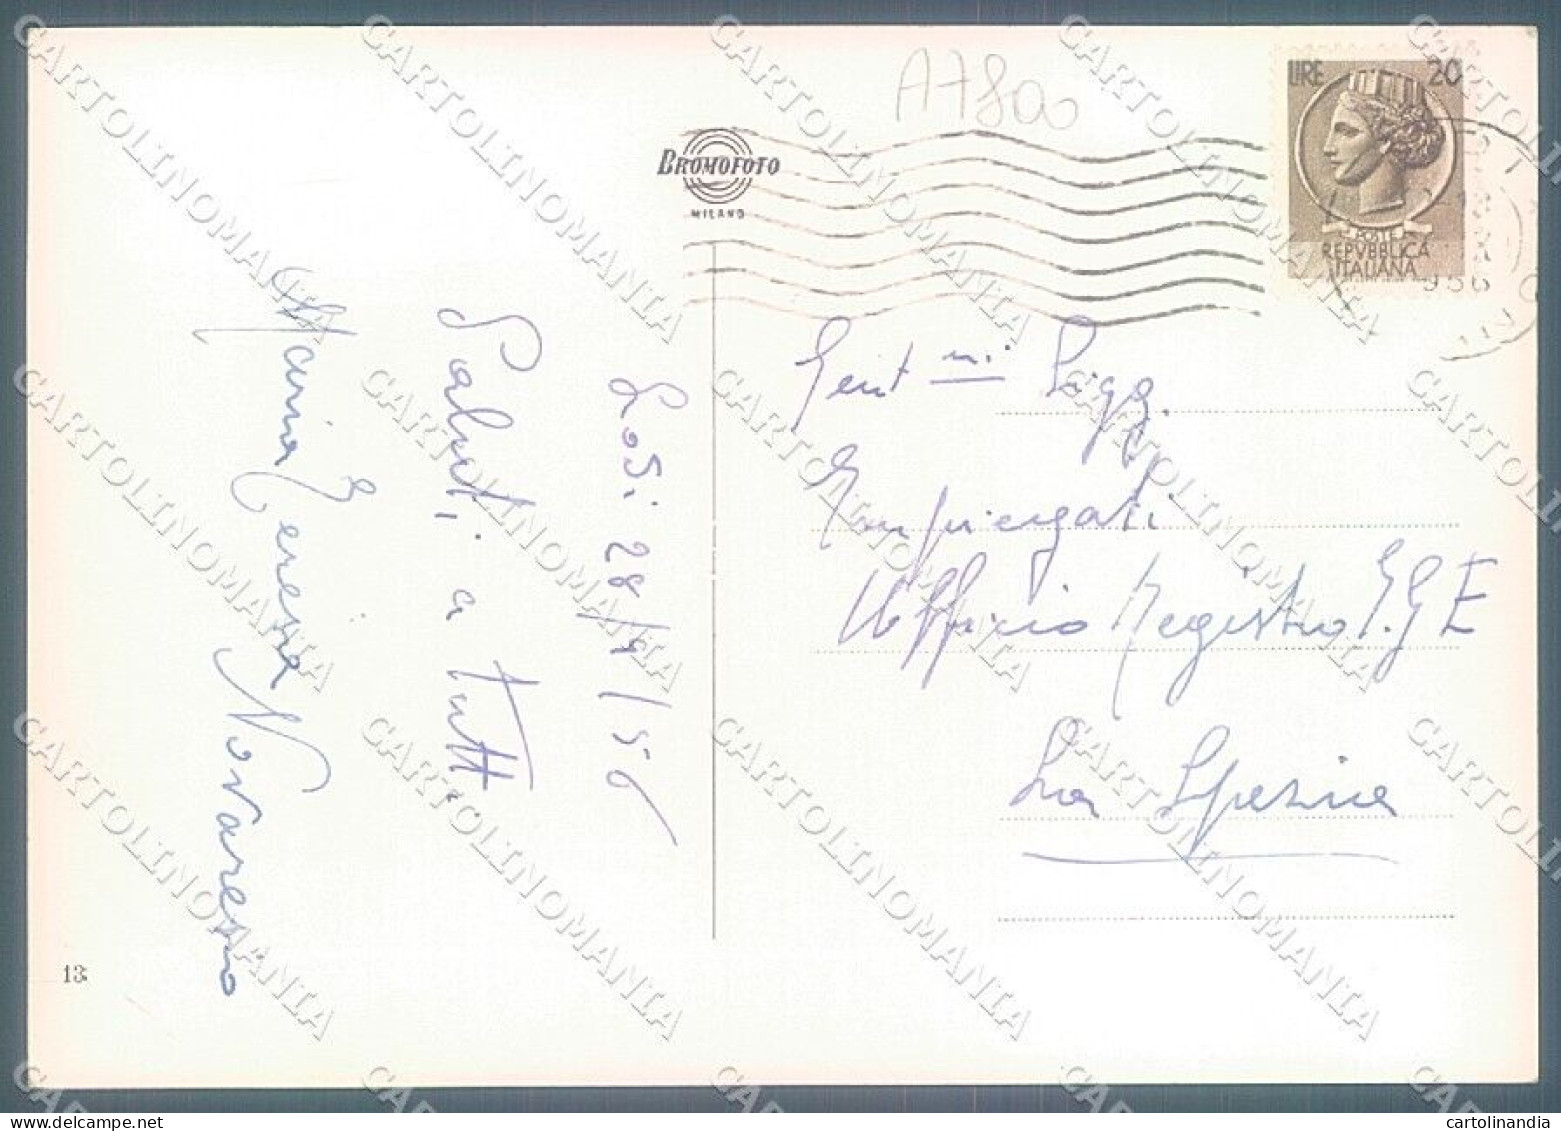 A7800
BROMOFOTO
MILANO
LIRE 20
POSTE
REPVBBLICA
ITALIANA
956
28/9/56
Saluti a tutti.
Maria Teresa Novarese
Gent mi Sigg.
Impiegati
Ufficio Registro I.G.E
La Spezia
13
CARTOLINOMANIA
cartolinandia